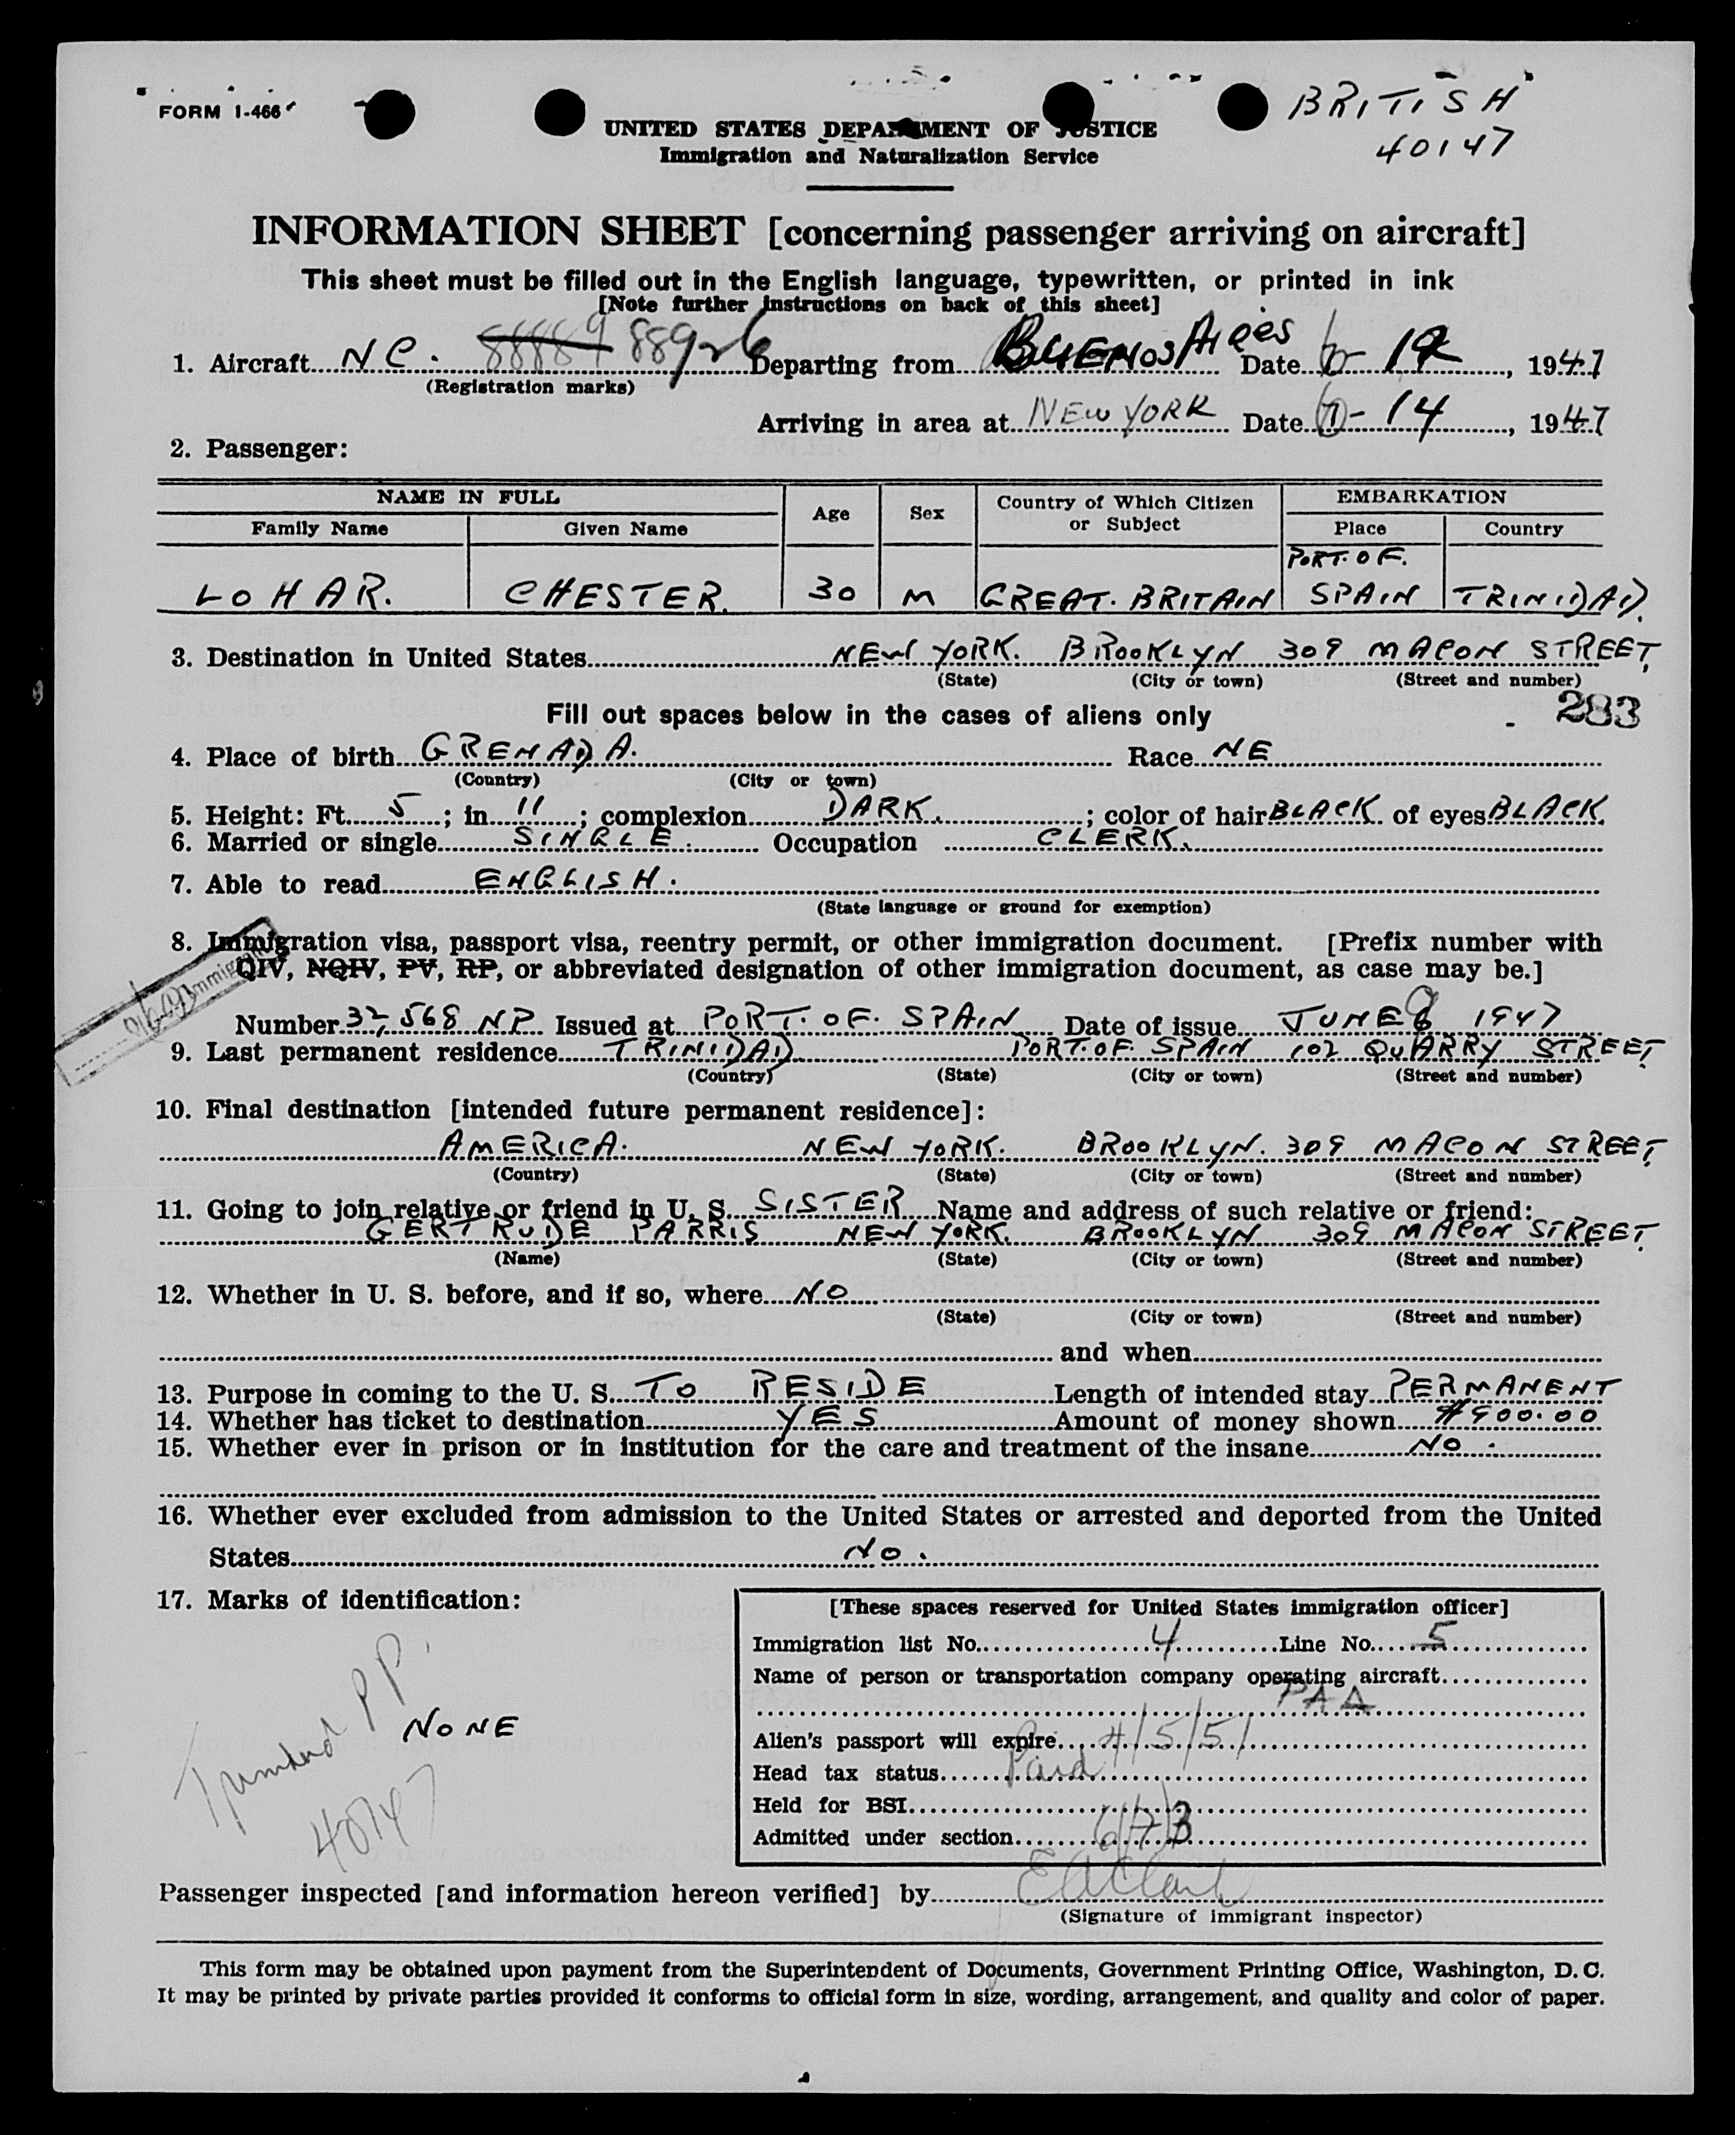 FORM I-466
BRITISH
40147
UNITED STATES DEPARTMENT OF JUSTICE
Immigration and Naturalization Service
INFORMATION SHEET [concerning passenger arriving on aircraft]
This sheet must be filled out in the English language, typewritten, or printed in ink
[Note further instructions on back of this sheet]
1. Aircraft NC. 88889 88926 Departing from BUENOS AIRES Date 6-12, 1947
(Registration marks)
Arriving in area at NEW YORK Date 14, 1947
2. Passenger:
NAME IN FULL Age Sex Country of Which Citizen or Subject EMBARKATION
Family Name Given Name Place Country
PORT. OF.
LOHAR. CHESTER. 30 M GREAT. BRITAIN SPAIN TRINIDAD.
3. Destination in United States NEW YORK. BROOKLYN 309 MACON STREET,
(State) (City or town) (Street and number)
Fill out spaces below in the cases of aliens only - 283
4. Place of birth GRENADA. Race NE
(Country) (City or town)
5. Height: Ft. 5; in 11; complexion DARK.; color of hair BLACK. of eyes BLACK.
6. Married or single SINGLE. Occupation CLERK.
7. Able to read ENGLISH.
(State language or ground for exemption)
8. Immigration visa, passport visa, reentry permit, or other immigration document. [Prefix number with
QIV, NQIV, PV, RP, or abbreviated designation of other immigration document, as case may be.]
Number 32,568 NP. Issued at PORT. OF. SPAIN Date of issue JUNE 8 1947
9. Last permanent residence TRINIDAD PORT. OF. SPAIN 102 QUARRY STREET,
(Country) (State) (City or town) (Street and number)
10. Final destination [intended future permanent residence]:
AMERICA. NEW YORK. BROOKLYN. 309 MACON STREET,
(Country) (State) (City or town) (Street and number)
11. Going to join relative or friend in U. S. SISTER Name and address of such relative or friend:
GERTRUDE PARRIS NEW YORK. BROOKLYN 309 MACON STREET,
(Name) (State) (City or town) (Street and number)
12. Whether in U. S. before, and if so, where NO
(State) (City or town) (Street and number)
and when
13. Purpose in coming to the U. S. TO RESIDE Length of intended stay PERMANENT
14. Whether has ticket to destination YES Amount of money shown $900.00
15. Whether ever in prison or in institution for the care and treatment of the insane NO.
16. Whether ever excluded from admission to the United States or arrested and deported from the United
States NO.
17. Marks of identification:
NONE
Trinidad PP.
40147
[These spaces reserved for United States immigration officer]
Immigration list No. 4 Line No. 5
Name of person or transportation company operating aircraft
PAA
Alien's passport will expire 4/5/51
Head tax status Paid
Held for BSI
Admitted under section
Passenger inspected [and information hereon verified] by E A Clark
(Signature of immigrant inspector)
This form may be obtained upon payment from the Superintendent of Documents, Government Printing Office, Washington, D. C.
It may be printed by private parties provided it conforms to official form in size, wording, arrangement, and quality and color of paper.